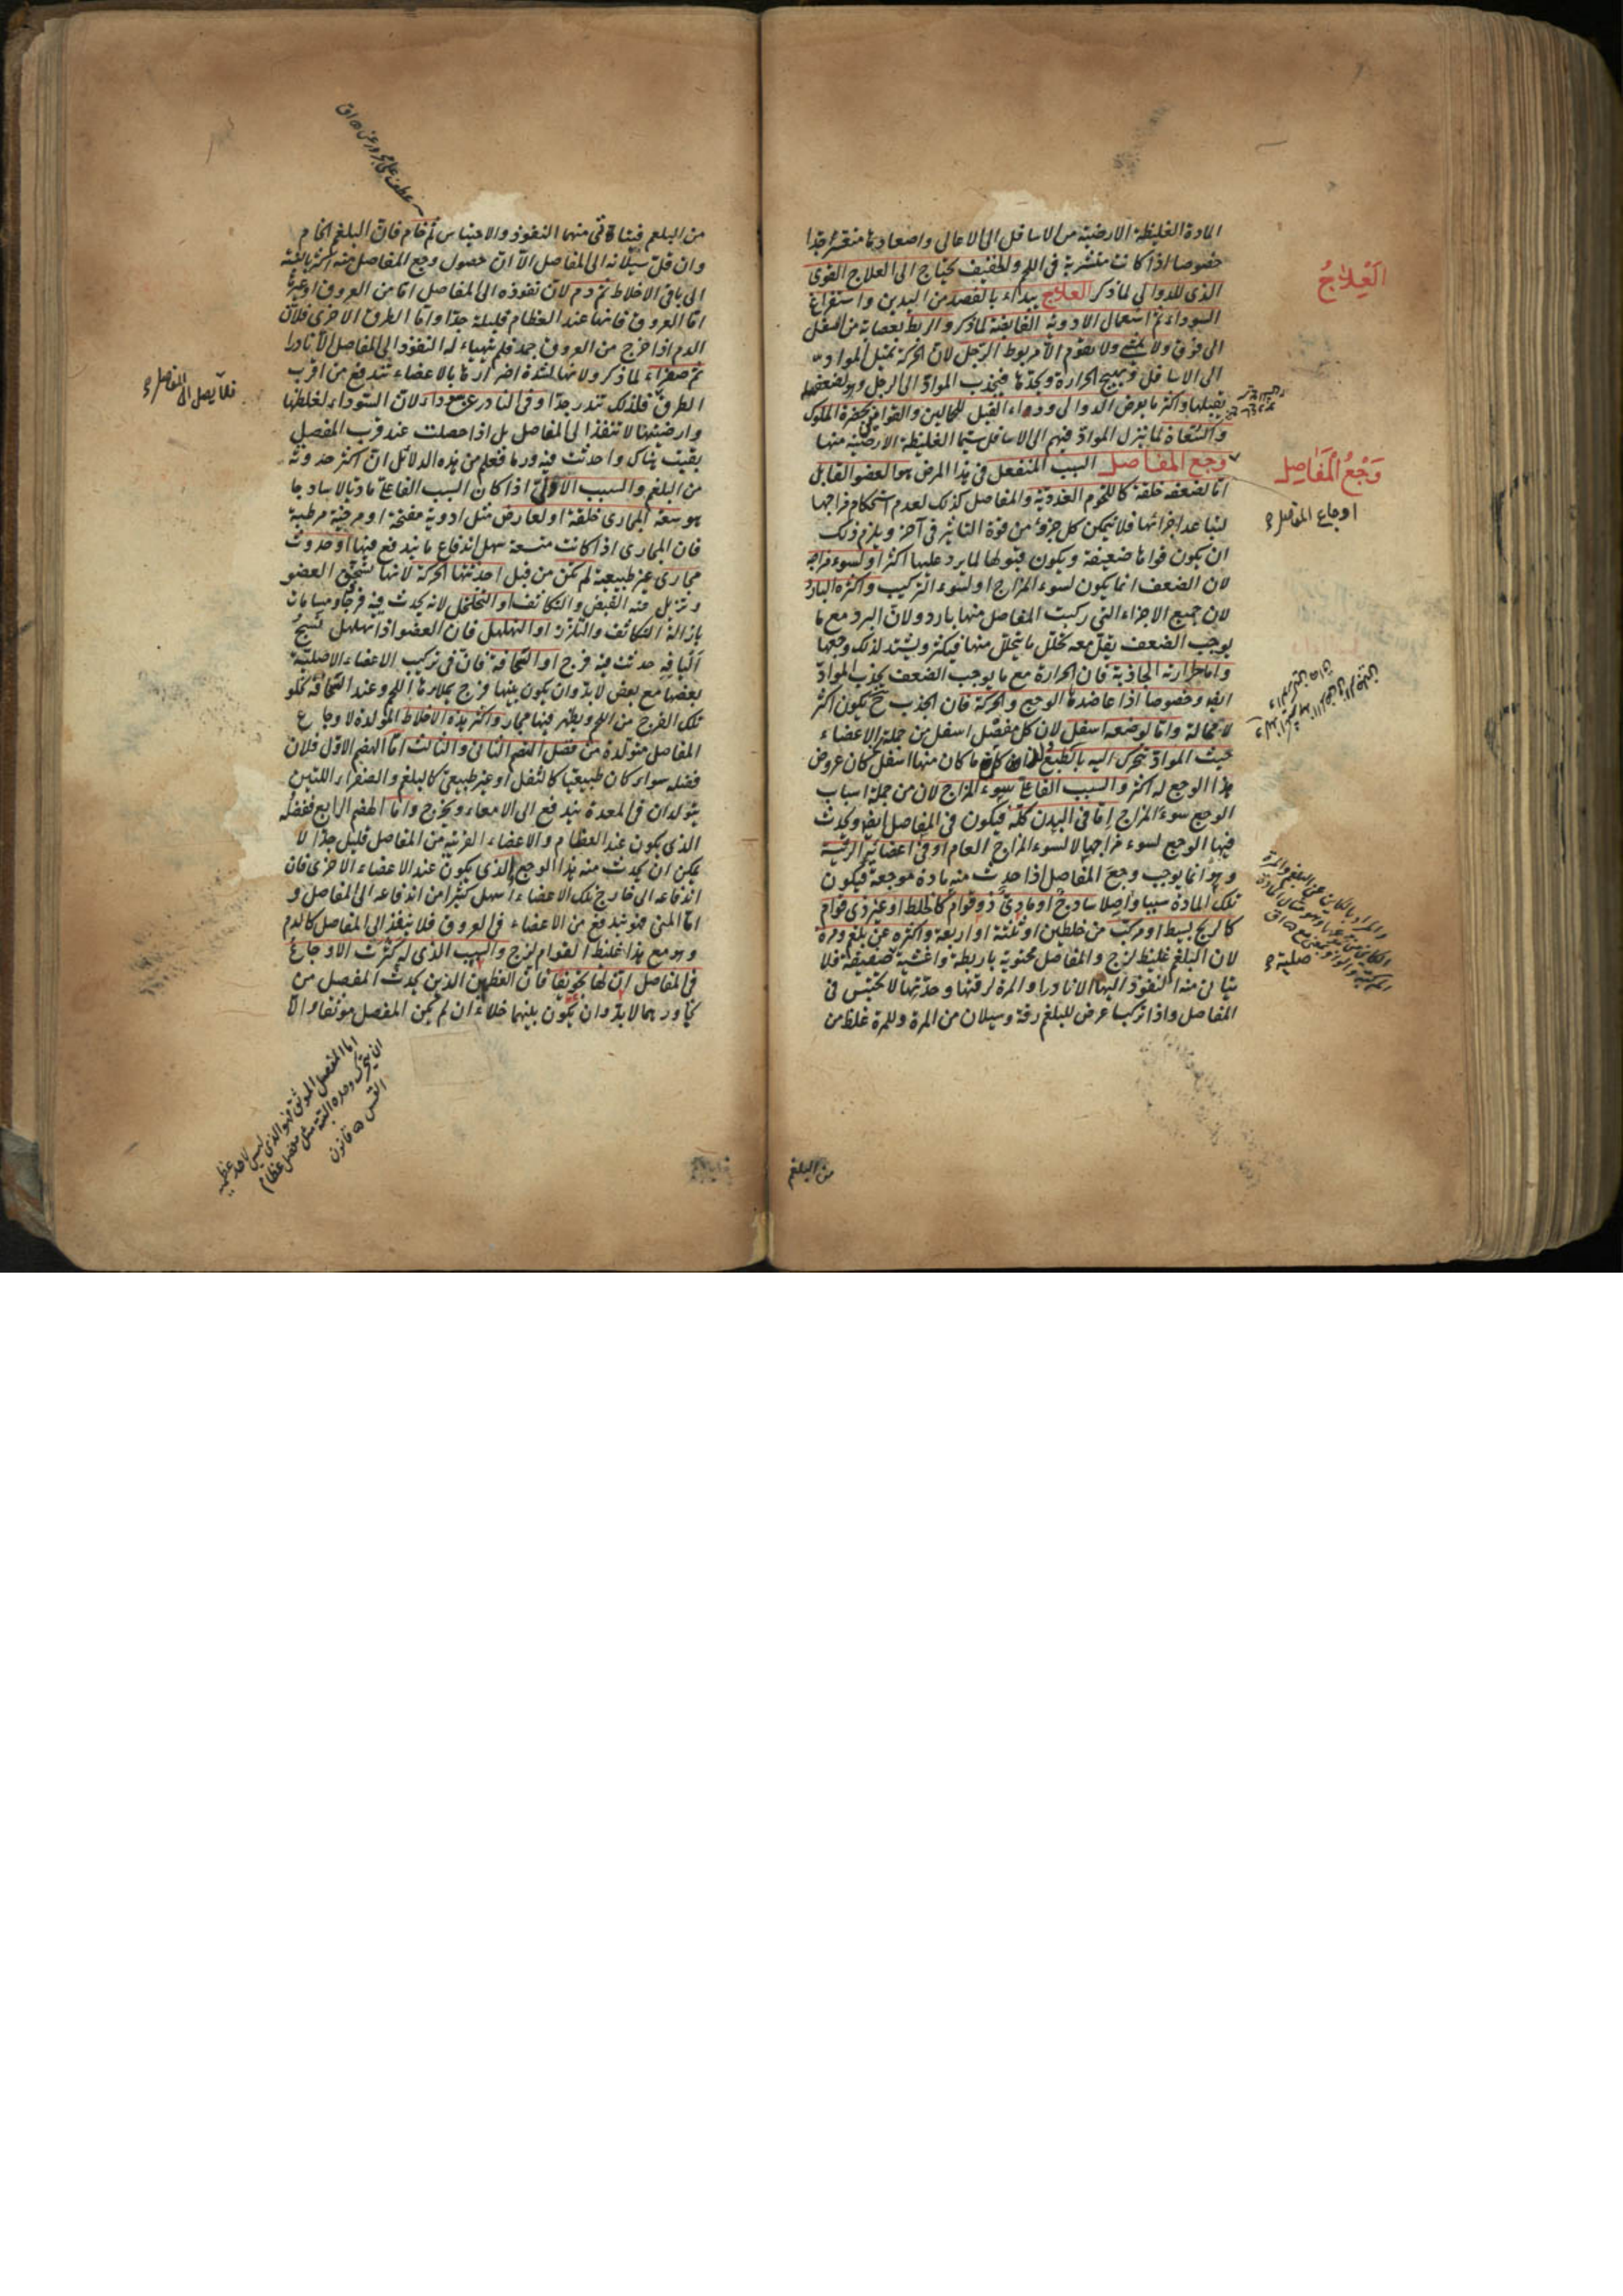 المادة الغليظة الارضية من الاسافل الى الاعالى واصعادها متعسر جدا
خصوصا اذا كانت متشربة فى اللحم ولطفيف يحتاج الى العلاج القوى
الذى للدوالى لما ذكر العلاج يبداء بالفصد من اليدين واستفراغ
السوداء ثم استعمال الادوية القابضة لما ذكر والربط بعصابة من اسفل
الى فوق ولا يمشى ولا يقوم الا مربوط الرجل لان الحركة تميل المواد
الى الاسافل وتهيج الحرارة وتحدها فيجذب المواد الى الرجل وهو لضعفها
يقبلها واكثر ما يعرض الدوالى وداء الفيل للحمالين والقوام بحضرة الملوك
والسعاة لما ينزل المواد فيهم الى الاسافل سيما الغليظة الارضية منها
وجع المفاصل السبب المنفعل فى هذا المرض هو العضو القابل
اما لضعفه خلقة كاللحوم الغددية والمفاصل كذلك لعدم استحكام مزاجها
لتباعد اجزائها فلا يتمكن كل جزؤ من قوة التاثير فى آخر ويلزم ذلك
ان يكون قواها ضعيفة ويكون قبولها لما يرد عليها اكثر او لسوء مزاجه
لان الضعف انما يكون لسوء المزاج او لسوء التركيب واكثره البارد
لان جميع الاجزاء التى ركبت المفاصل منها بارد ولان البرد مع ما
يوجب الضعف يقل معه تحلل ما يتحلل منها فيكثر ويشتد لذلك وجعها
واما حرارته الجاذبة فان الحرارة مع ما يوجب الضعف يجذب المواد
ايضا وخصوصا اذا عاضدها الوجع والحركة فان الجذب ح يكون اكثر
لا محالة واما لوضعه اسفل لان كل مفصل اسفل من جملة الاعضاء
حيث المواد تتحرك اليه بالطبع ما كان منها اسفل كان عروض
هذا الوجع له اكثر والسبب الفاعل سوء المزاج لان من جملة اسباب
الوجع سوء المزاج اما فى البدن كله فيكون فى المفاصل ايضا ويحدث
فيها الوجع لسوء مزاجها لا لسوء المزاج العام او فى اعضائه الرئيسة
وهو انما يوجب وجع المفاصل اذا حدث منه مادة موجعة فيكون
تلك المادة سببا واصلا ساذج او مادى ذو قوام كالخلط او غير ذى قوام
كالريح بسيط او مركب من خلطين او ثلثة او اربعة واكثره عن بلغم ومرة
لان البلغم غليظ لزج والمفاصل محتوية باربطة واغشية صفيقة فلا
يتاتى منه النفوذ اليها الا نادرا والمرة لرقتها وحدتها لا تحتبس فى
المفاصل واذا تركبا عرض للبلغم رقة وسيلان من المرة وللمرة غلظ من
من البلغم
اَلْعِلَاجُ
وَجْعُ الْمَفَاصِلِ
اوجاع المفاصل
صلبة
من البلغم فيتاتى منهما النفوذ والاحتباس ثم خام فان البلغم الخام
وان قل سيلانه الى المفاصل الا ان حصول وجع المفاصل منه اكثر بالنسبة
الى باقى الاخلاط ثم دم لان نفوذه الى المفاصل اما من العروق او غيرها
اما العروق فانها عند العظام قليلة جدا واما الطرق الاخرى فلان
الدم اذا خرج من العروق جمد فلم يتهياء له النفوذ الى المفاصل الا نادرا
ثم صفراء لما ذكر ولانها لشدة اضرارها بالاعضاء تندفع من اقرب
الطرق فلذلك تندر جدا وفى النادر عن سوداء لان السوداء لغلظها
وارضيتها لا تنفذ الى المفاصل بل اذا حصلت عند قرب المفصل
بقيت هناك واحدثت فيه ورما فعلم من هذه الدلائل ان اكثر حدوثه
من البلغم والسبب الاولى اذا كان السبب الفاعل ماديا لا ساذجا
هو سعة المجارى خلقة او لعارض مثل ادوية مفتحة او مرخية مرطبة
فان المجارى اذا كانت متسعة سهل اندفاع ما يندفع فيها او حدوث
مجارى غير طبيعية لم تكن من قبل احدثتها الحركة لانها تسخن العضو
وتزيل منه القبض والتكاثف او التخلخل لانه يحدث فيه فرجا ومسامات
بازالة التكاثف والتلزز او التهلهل فان العضو اذا تهلهل نسج
اليافه حدثت فيه فرج او النحافة فان فى تركيب الاعضاء الاصلية
بعضها مع بعض لابد وان يكون بينها فرج يملاءها اللحم وعند النحافة تخلو
تلك الفرج من اللحم ويظهر فيها مجار واكثر هذه الاخلاط المولدة لاوجاع
المفاصل متولدة من فضل الهضم الثانى والثالث اما الهضم الاول فلان
فضله سواء كان طبيعيا كالثفل او غير طبيعى كالبلغم والصفراء اللتين
يتولدان فى المعدة يندفع الى الامعاء ويخرج واما الهضم الرابع ففضله
الذى يكون عند العظام والاعضاء القريبة من المفاصل قليل جدا لا
يمكن ان يحدث منه هذا الوجع والذى يكون عند الاعضاء الاخرى فان
اندفاعه الى خارج تلك الاعضاء اسهل كثيرا من اندفاعه الى المفاصل و
اما المنى فهو يندفع من الاعضاء فى العروق فلا ينفذ الى المفاصل كالدم
وهو مع هذا غليظ القوام لزج والسبب الذى له كثرت الاوجاع
فى المفاصل ان لها تجويفا فان العظمين الذين يحدث المفصل من
تجاورهما لابد وان يكون بينهما خلاء ان لم يكن المفصل موثقا والا
فلا يصل الى المفاصل
اما المفصل الموثق فهو الذى ليس لاحد عظميه
ان يتحرك وحده البتة مثل مفصل عظام
القس ه قانون